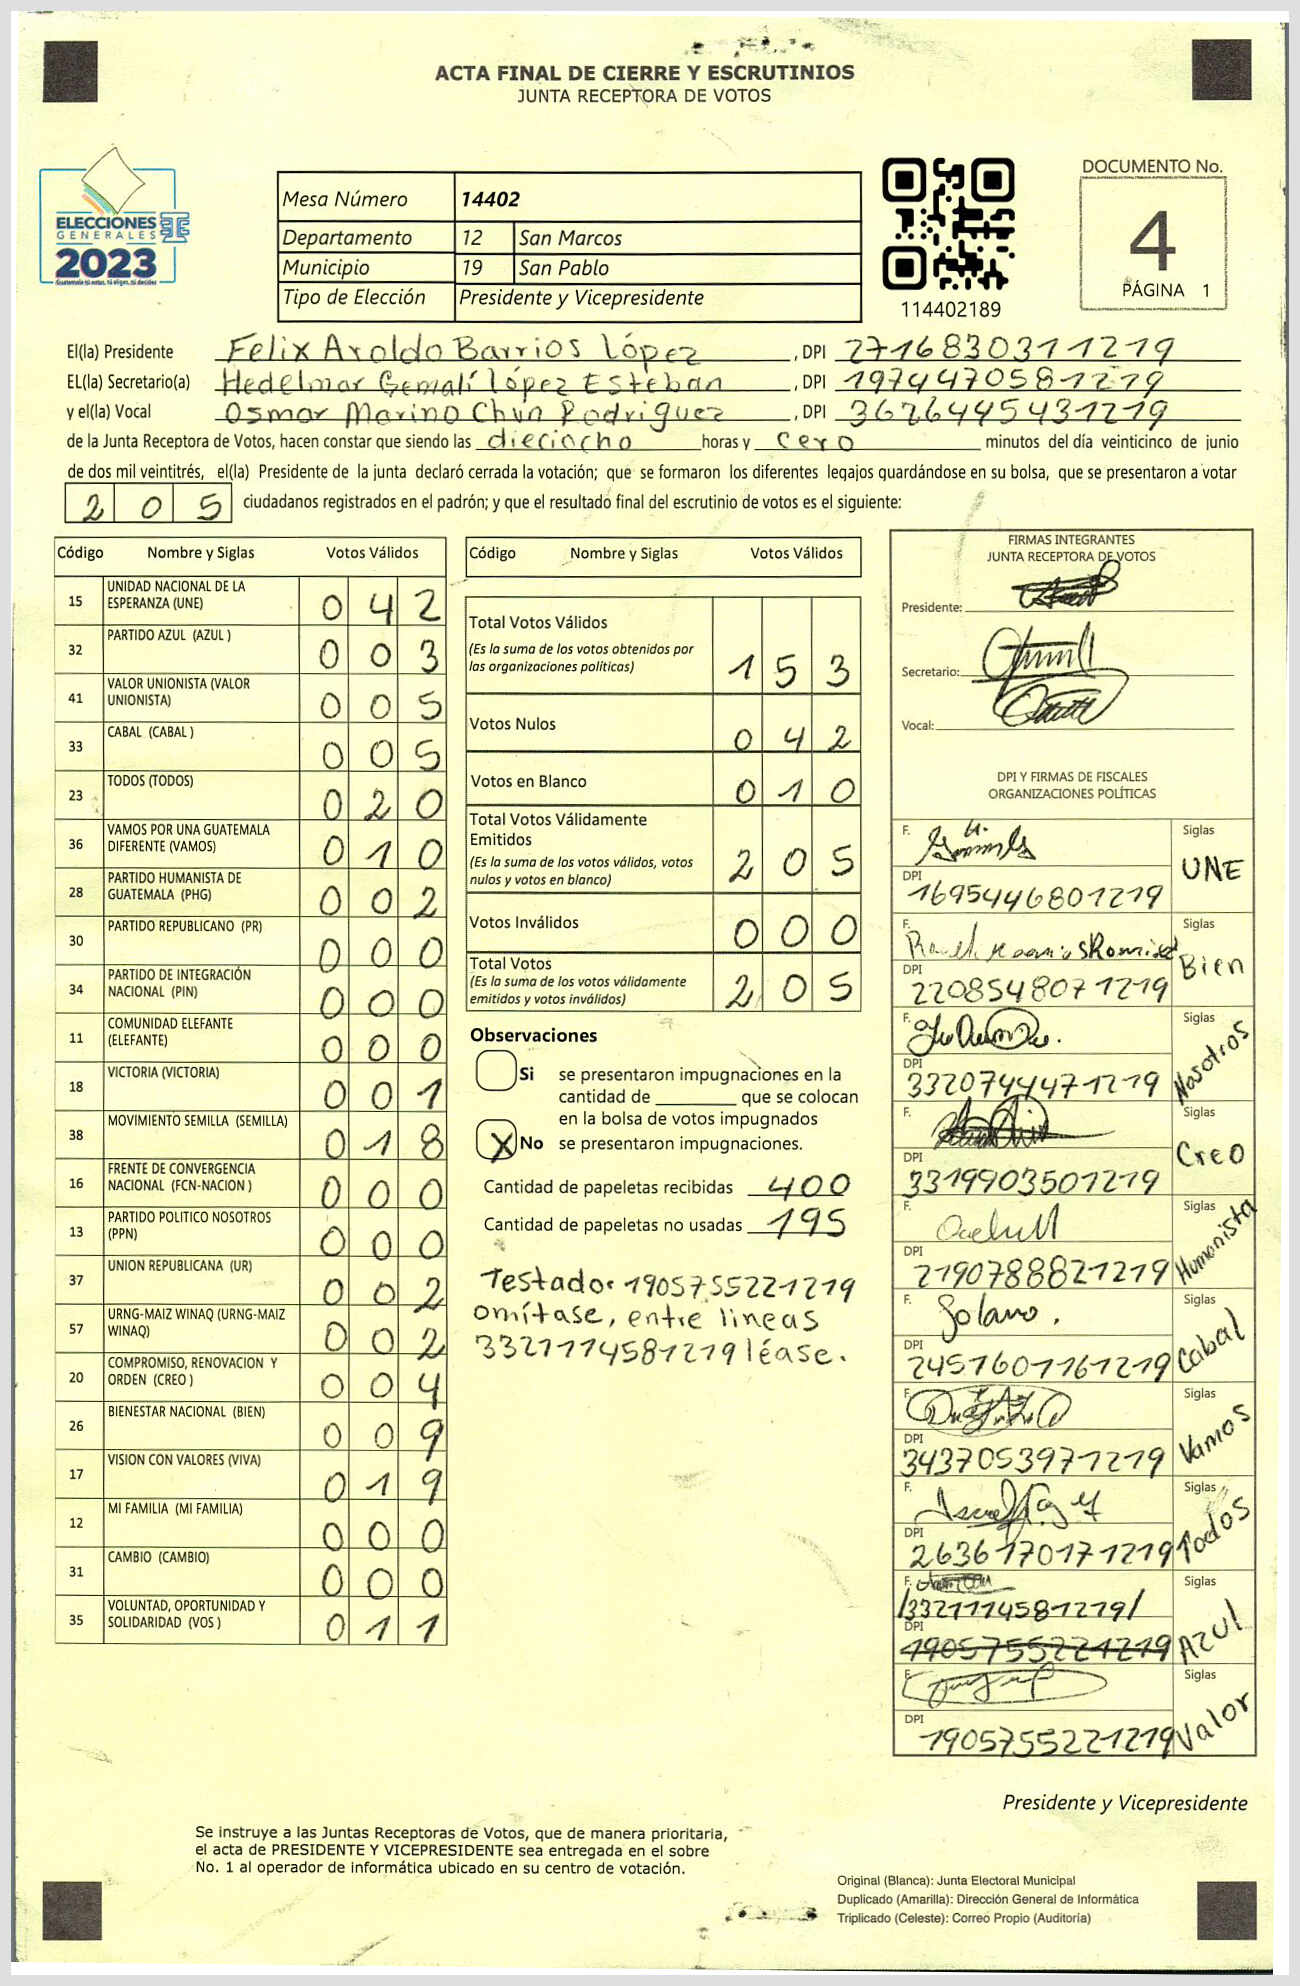 ACTA FINAL DE CIERRE Y ESCRUTINIOS
JUNTA RECEPTORA DE VOTOS
ELECCIONES
GENERALES
2023
Guatemala tú votas, tú eliges, tú decides
Mesa Número 14402
Departamento 12 San Marcos
Municipio 19 San Pablo
Tipo de Elección Presidente y Vicepresidente
114402189
DOCUMENTO No.
4
PÁGINA 1
El(la) Presidente Felix Aroldo Barrios López, DPI 2716830311219
EL(la) Secretario(a) Hedelmar Gemalí López Esteban, DPI 1974470581219
y el(la) Vocal Osmar Marino Chun Rodriguez, DPI 3626445431219
de la Junta Receptora de Votos, hacen constar que siendo las dieciocho horas y cero minutos del día veinticinco de junio
de dos mil veintitrés, el(la) Presidente de la junta declaró cerrada la votación; que se formaron los diferentes legajos quardándose en su bolsa, que se presentaron a votar
205 ciudadanos registrados en el padrón; y que el resultado final del escrutinio de votos es el siguiente:
Código Nombre y Siglas Votos Válidos
15 UNIDAD NACIONAL DE LA ESPERANZA (UNE) 042
32 PARTIDO AZUL (AZUL ) 003
41 VALOR UNIONISTA (VALOR UNIONISTA) 005
33 CABAL (CABAL ) 005
23 TODOS (TODOS) 020
36 VAMOS POR UNA GUATEMALA DIFERENTE (VAMOS) 010
28 PARTIDO HUMANISTA DE GUATEMALA (PHG) 002
30 PARTIDO REPUBLICANO (PR) 000
34 PARTIDO DE INTEGRACIÓN NACIONAL (PIN) 000
11 COMUNIDAD ELEFANTE (ELEFANTE) 000
18 VICTORIA (VICTORIA) 001
38 MOVIMIENTO SEMILLA (SEMILLA) 018
16 FRENTE DE CONVERGENCIA NACIONAL (FCN-NACION ) 000
13 PARTIDO POLITICO NOSOTROS (PPN) 000
37 UNION REPUBLICANA (UR) 002
57 URNG-MAIZ WINAQ (URNG-MAIZ WINAQ) 002
20 COMPROMISO, RENOVACION Y ORDEN (CREO ) 004
26 BIENESTAR NACIONAL (BIEN) 009
17 VISION CON VALORES (VIVA) 019
12 MI FAMILIA (MI FAMILIA) 000
31 CAMBIO (CAMBIO) 000
35 VOLUNTAD, OPORTUNIDAD Y SOLIDARIDAD (VOS ) 011
Código Nombre y Siglas Votos Válidos
Total Votos Válidos 153
(Es la suma de los votos obtenidos por
las organizaciones políticas)
Votos Nulos 042
Votos en Blanco 010
Total Votos Válidamente
Emitidos 205
(Es la suma de los votos válidos, votos
nulos y votos en blanco)
Votos Inválidos 000
Total Votos 205
(Es la suma de los votos válidamente
emitidos y votos inválidos)
Observaciones
Si se presentaron impugnaciones en la
cantidad de ________ que se colocan
en la bolsa de votos impugnados
X No se presentaron impugnaciones.
Cantidad de papeletas recibidas 400
Cantidad de papeletas no usadas 195
Testado: 1905755221219
omítase, entre lineas
3321114581219 léase.
FIRMAS INTEGRANTES
JUNTA RECEPTORA DE VOTOS
Presidente:
Secretario:
Vocal:
DPI Y FIRMAS DE FISCALES
ORGANIZACIONES POLÍTICAS
F. Siglas UNE
DPI 1695446801219
F. Siglas Bien
DPI 2208548071219
F. Siglas Nosotros
DPI 3320744471219
F. Siglas Creo
DPI 3319903501219
F. Siglas Humanista
DPI 2190788821219
F. Solano. Siglas Cabal
DPI 2451601161219
F. Siglas Vamos
DPI 3437053971219
F. Siglas Todos
DPI 2636170171219
F. Siglas AZUL
/3321114581219/
DPI 1905755221219
F. Siglas Valor
DPI 1905755221219
Presidente y Vicepresidente
Se instruye a las Juntas Receptoras de Votos, que de manera prioritaria,
el acta de PRESIDENTE Y VICEPRESIDENTE sea entregada en el sobre
No. 1 al operador de informática ubicado en su centro de votación.
Original (Blanca): Junta Electoral Municipal
Duplicado (Amarilla): Dirección General de Informática
Triplicado (Celeste): Correo Propio (Auditoría)